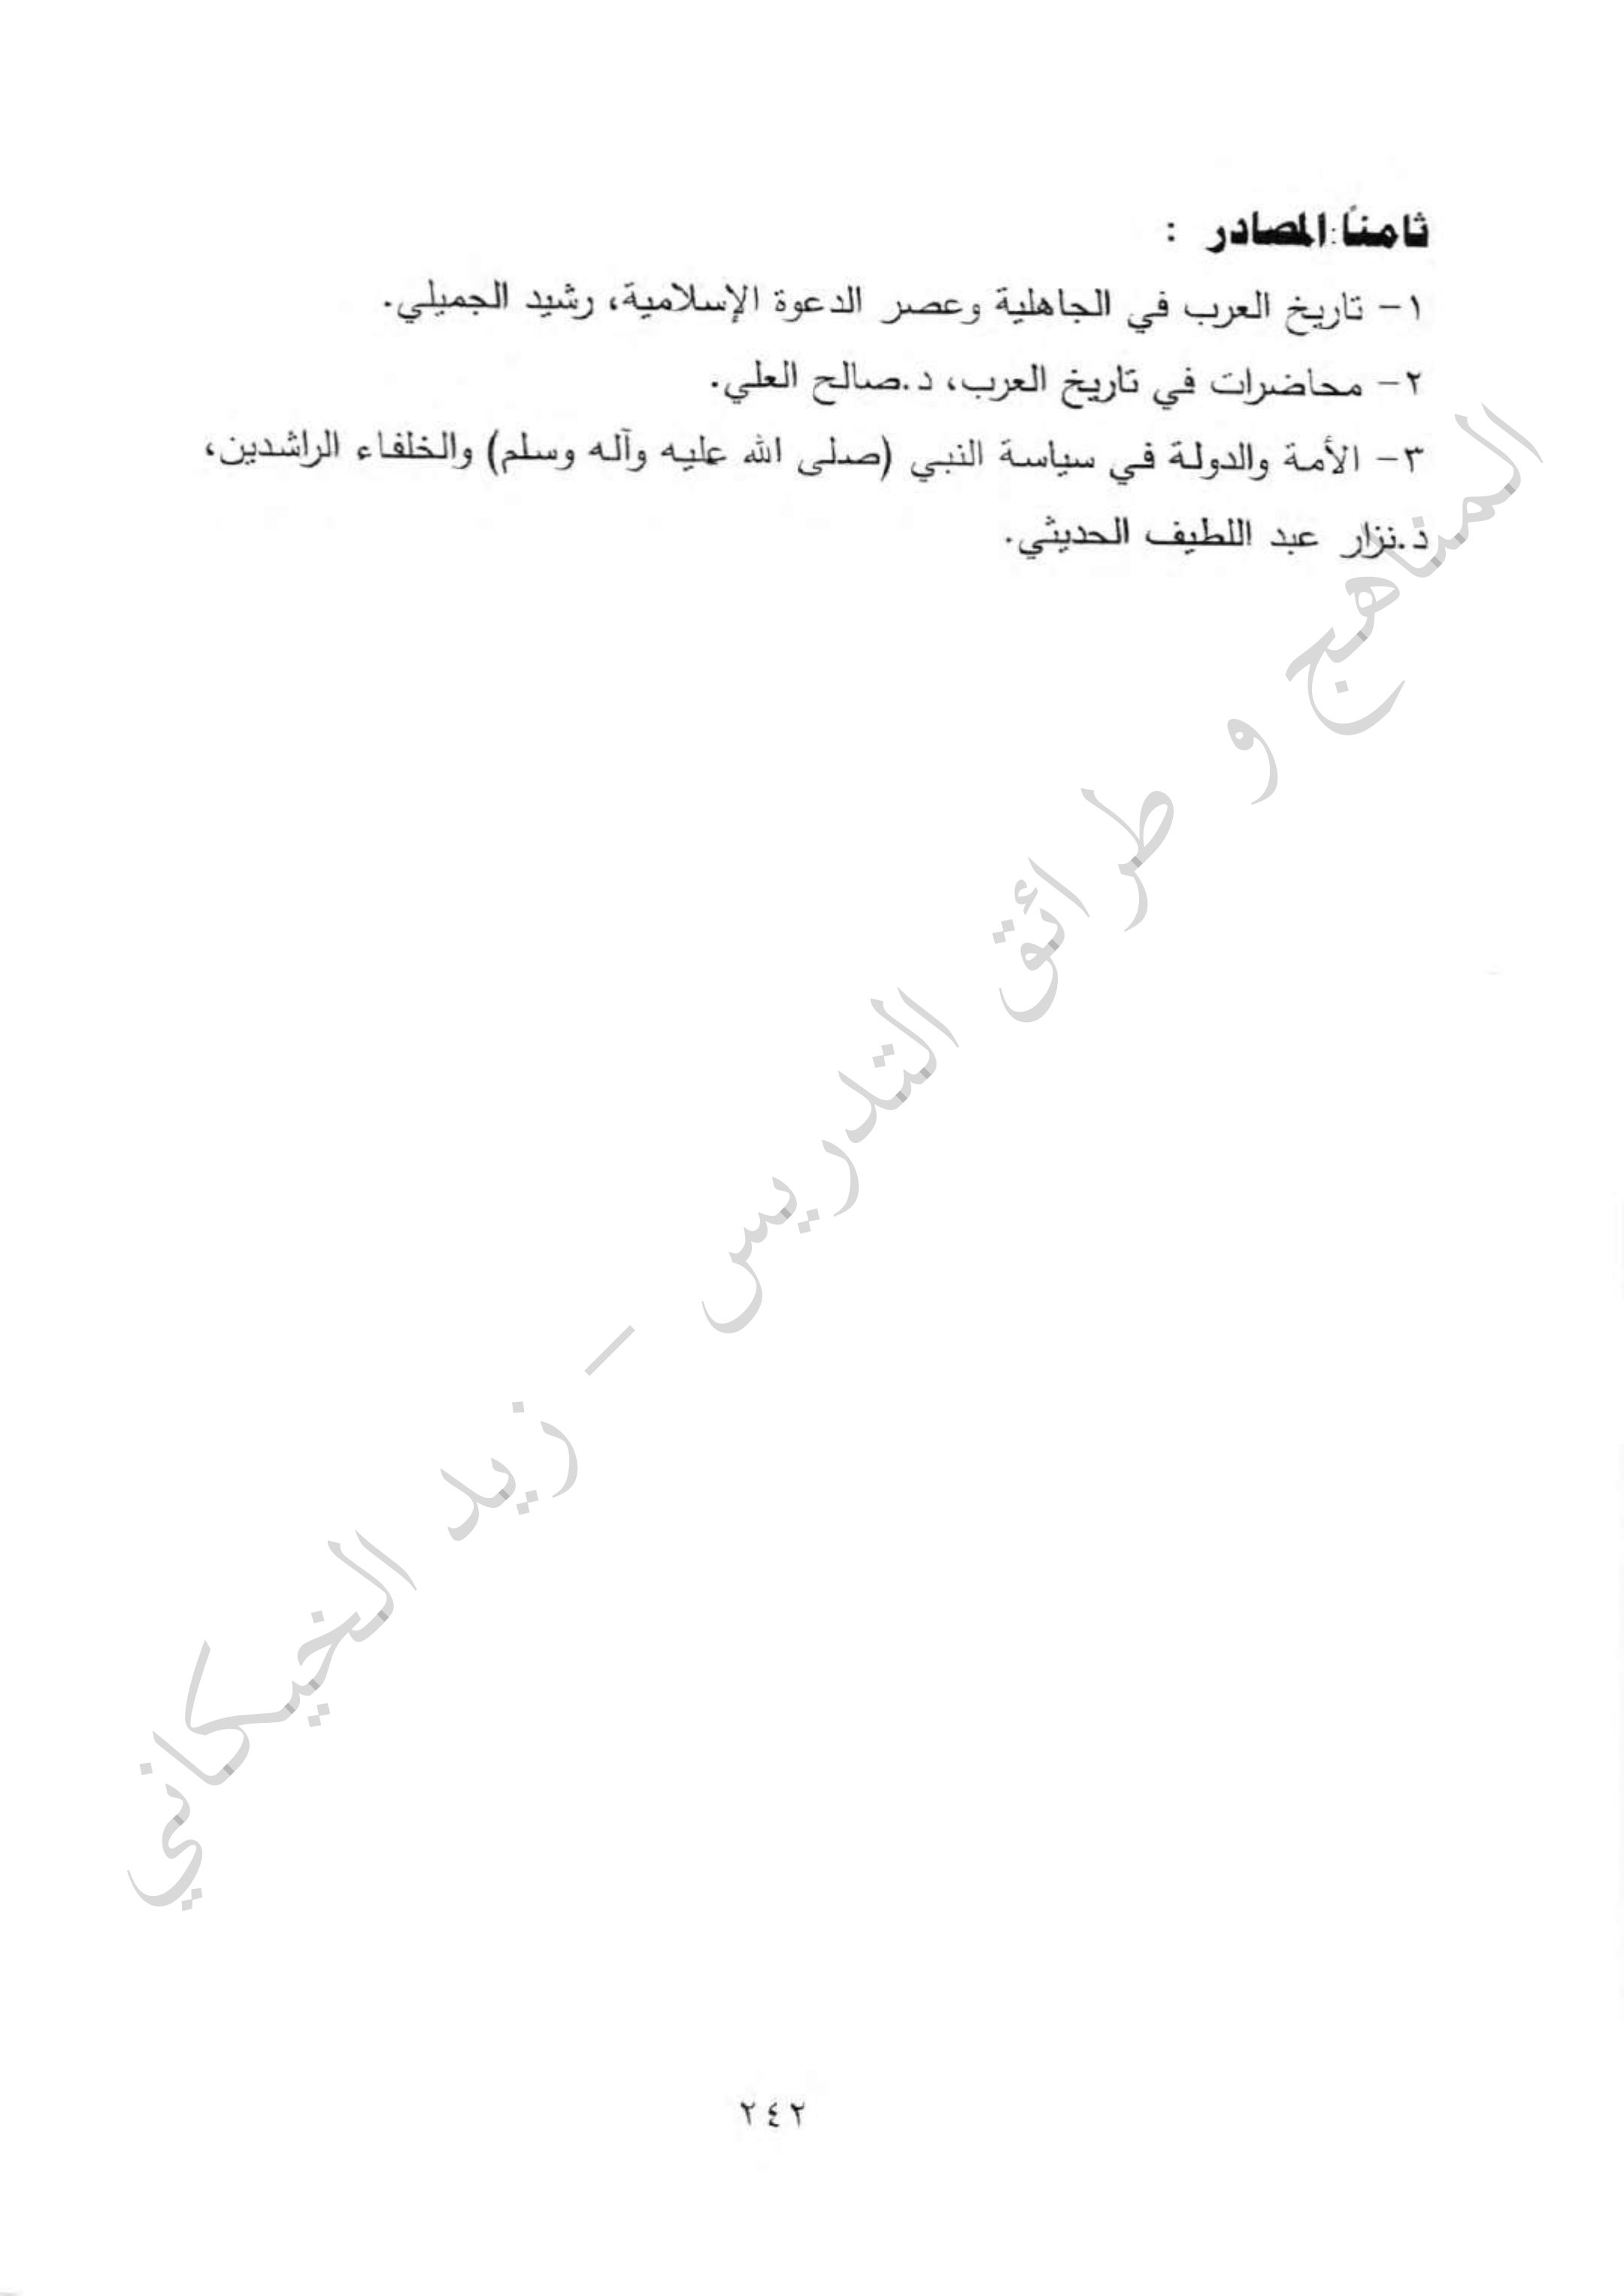 ثامناً: المصادر :
١- تاريخ العرب في الجاهلية وعصر الدعوة الإسلامية، رشيد الجميلي.
٢- محاضرات في تاريخ العرب، د.صالح العلي.
٣- الأمة والدولة في سياسة النبي (صلى الله عليه وآله وسلم) والخلفاء الراشدين،
د.نزار عبد اللطيف الحديثي.
المناهج و طرائق التدريس - زيد الخيكاني
٢٤٢